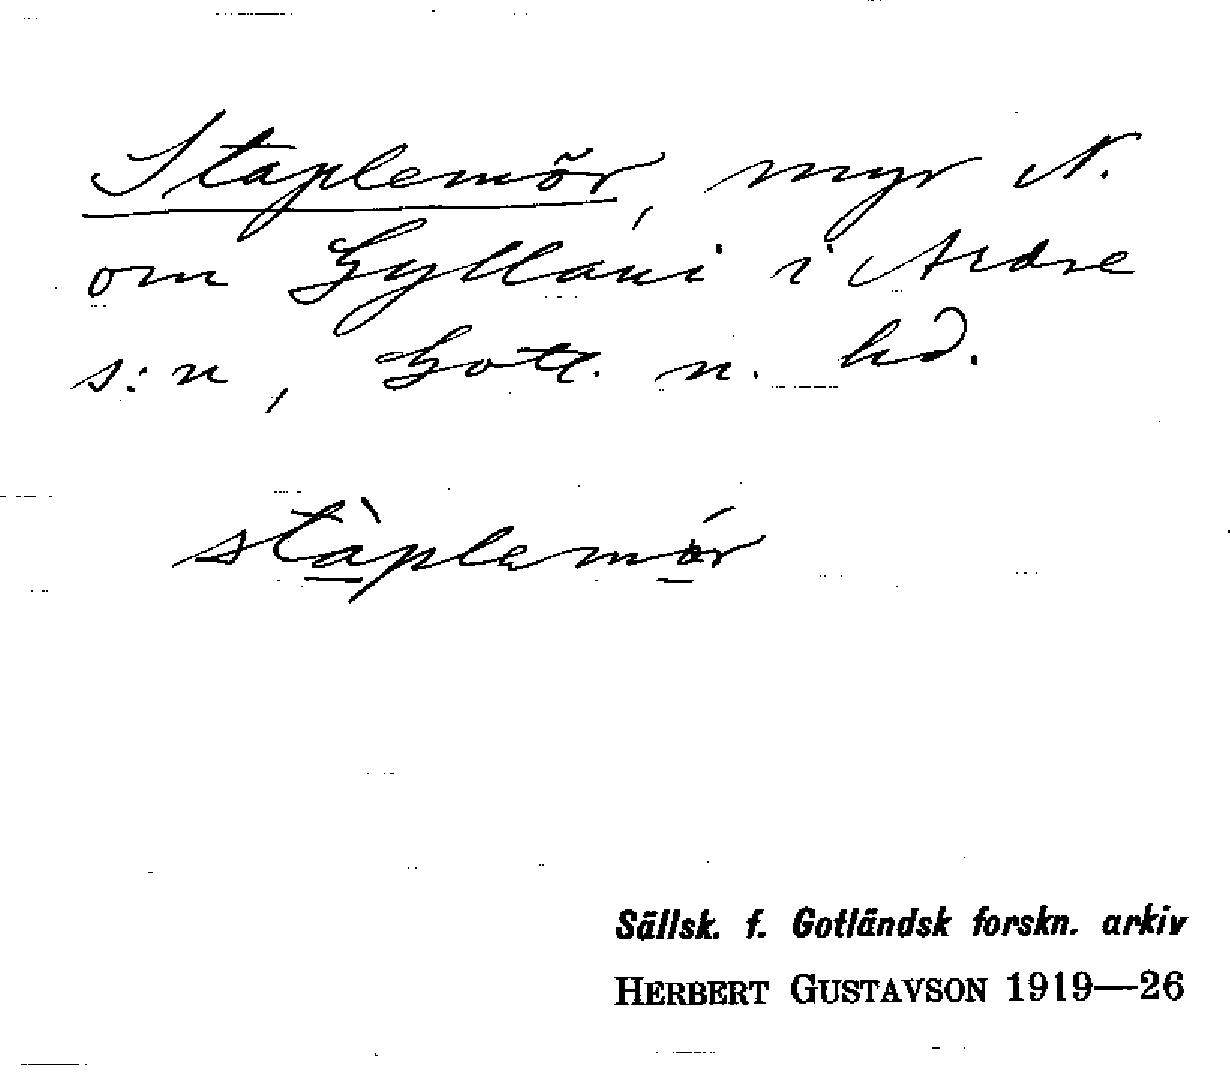 Staplemör, myr N.
om Gyllaui i Ardre
s:n, Gotl. n. hd.
stàplemór
Sällsk. f. Gotländsk forskn. arkiv
HERBERT GUSTAVSON 1919—26